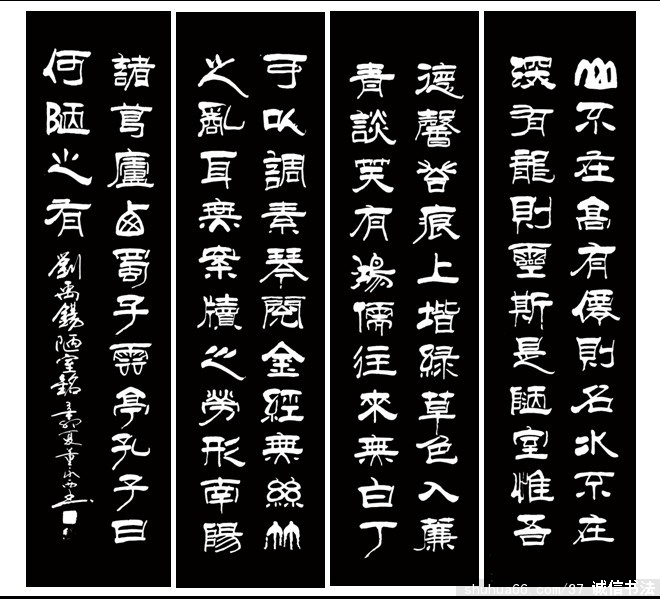 山不在高有僊則名水不在
深有龍則靈斯是陋室惟吾
德馨苔痕上堦綠草色入簾
青談笑有鴻儒往來無白丁
可以調素琴閱金經無絲竹
之亂耳無案牘之勞形南陽
諸葛廬西蜀子雲亭孔子曰
何陋之有
劉禹錫陋室銘辛卯夏
shuhua66.com/37 诚信书法